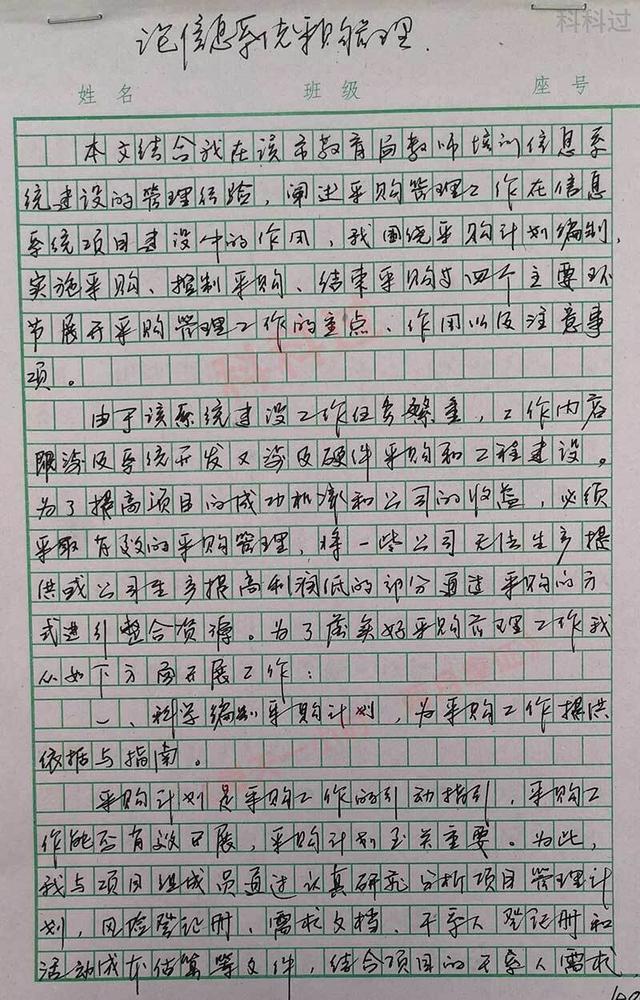 科科过
论信息系统采购管理.
姓名 班级 座号
本文结合我在该市教育局教师培训信息系
统建设的管理经验，阐述采购管理工作在信息
系统项目建设中的作用，我围绕采购计划编制，
实施采购、控制采购、结束采购与四个主要环
节展开采购管理工作的重点、作用以及注意事
项。
由于该系统建设工作任务繁重，工作内容
即涉及系统开发又涉及硬件采购和工程建设。
为了提高项目的成功机率和公司的收益，必须
采取有效的采购管理，将一些公司无法生产提
供或公司生产提高利润低的部分通过采购的方
式进引整合资源。为了落实好采购管理工作我
从如下方面开展工作：
一、科学编制采购计划，为采购工作提供
依据与指南。
采购计划是采购工作的引动指引，采购工
作能否有效开展，采购计划至关重要。为此，
我与项目组成员通过认真研究分析项目管理计
划，风险登记册、需求文档、干系人登记册和
活动成本估算等文件，结合项目的干系人需求